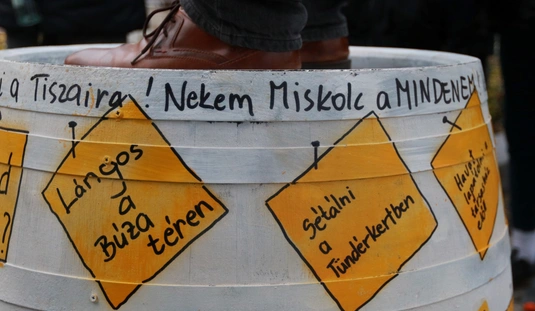 a Tiszaira! Nekem Miskolc a MINDENEM!
Lángos
a
Búza
téren
Sétálni
a
Tündérkertben
?